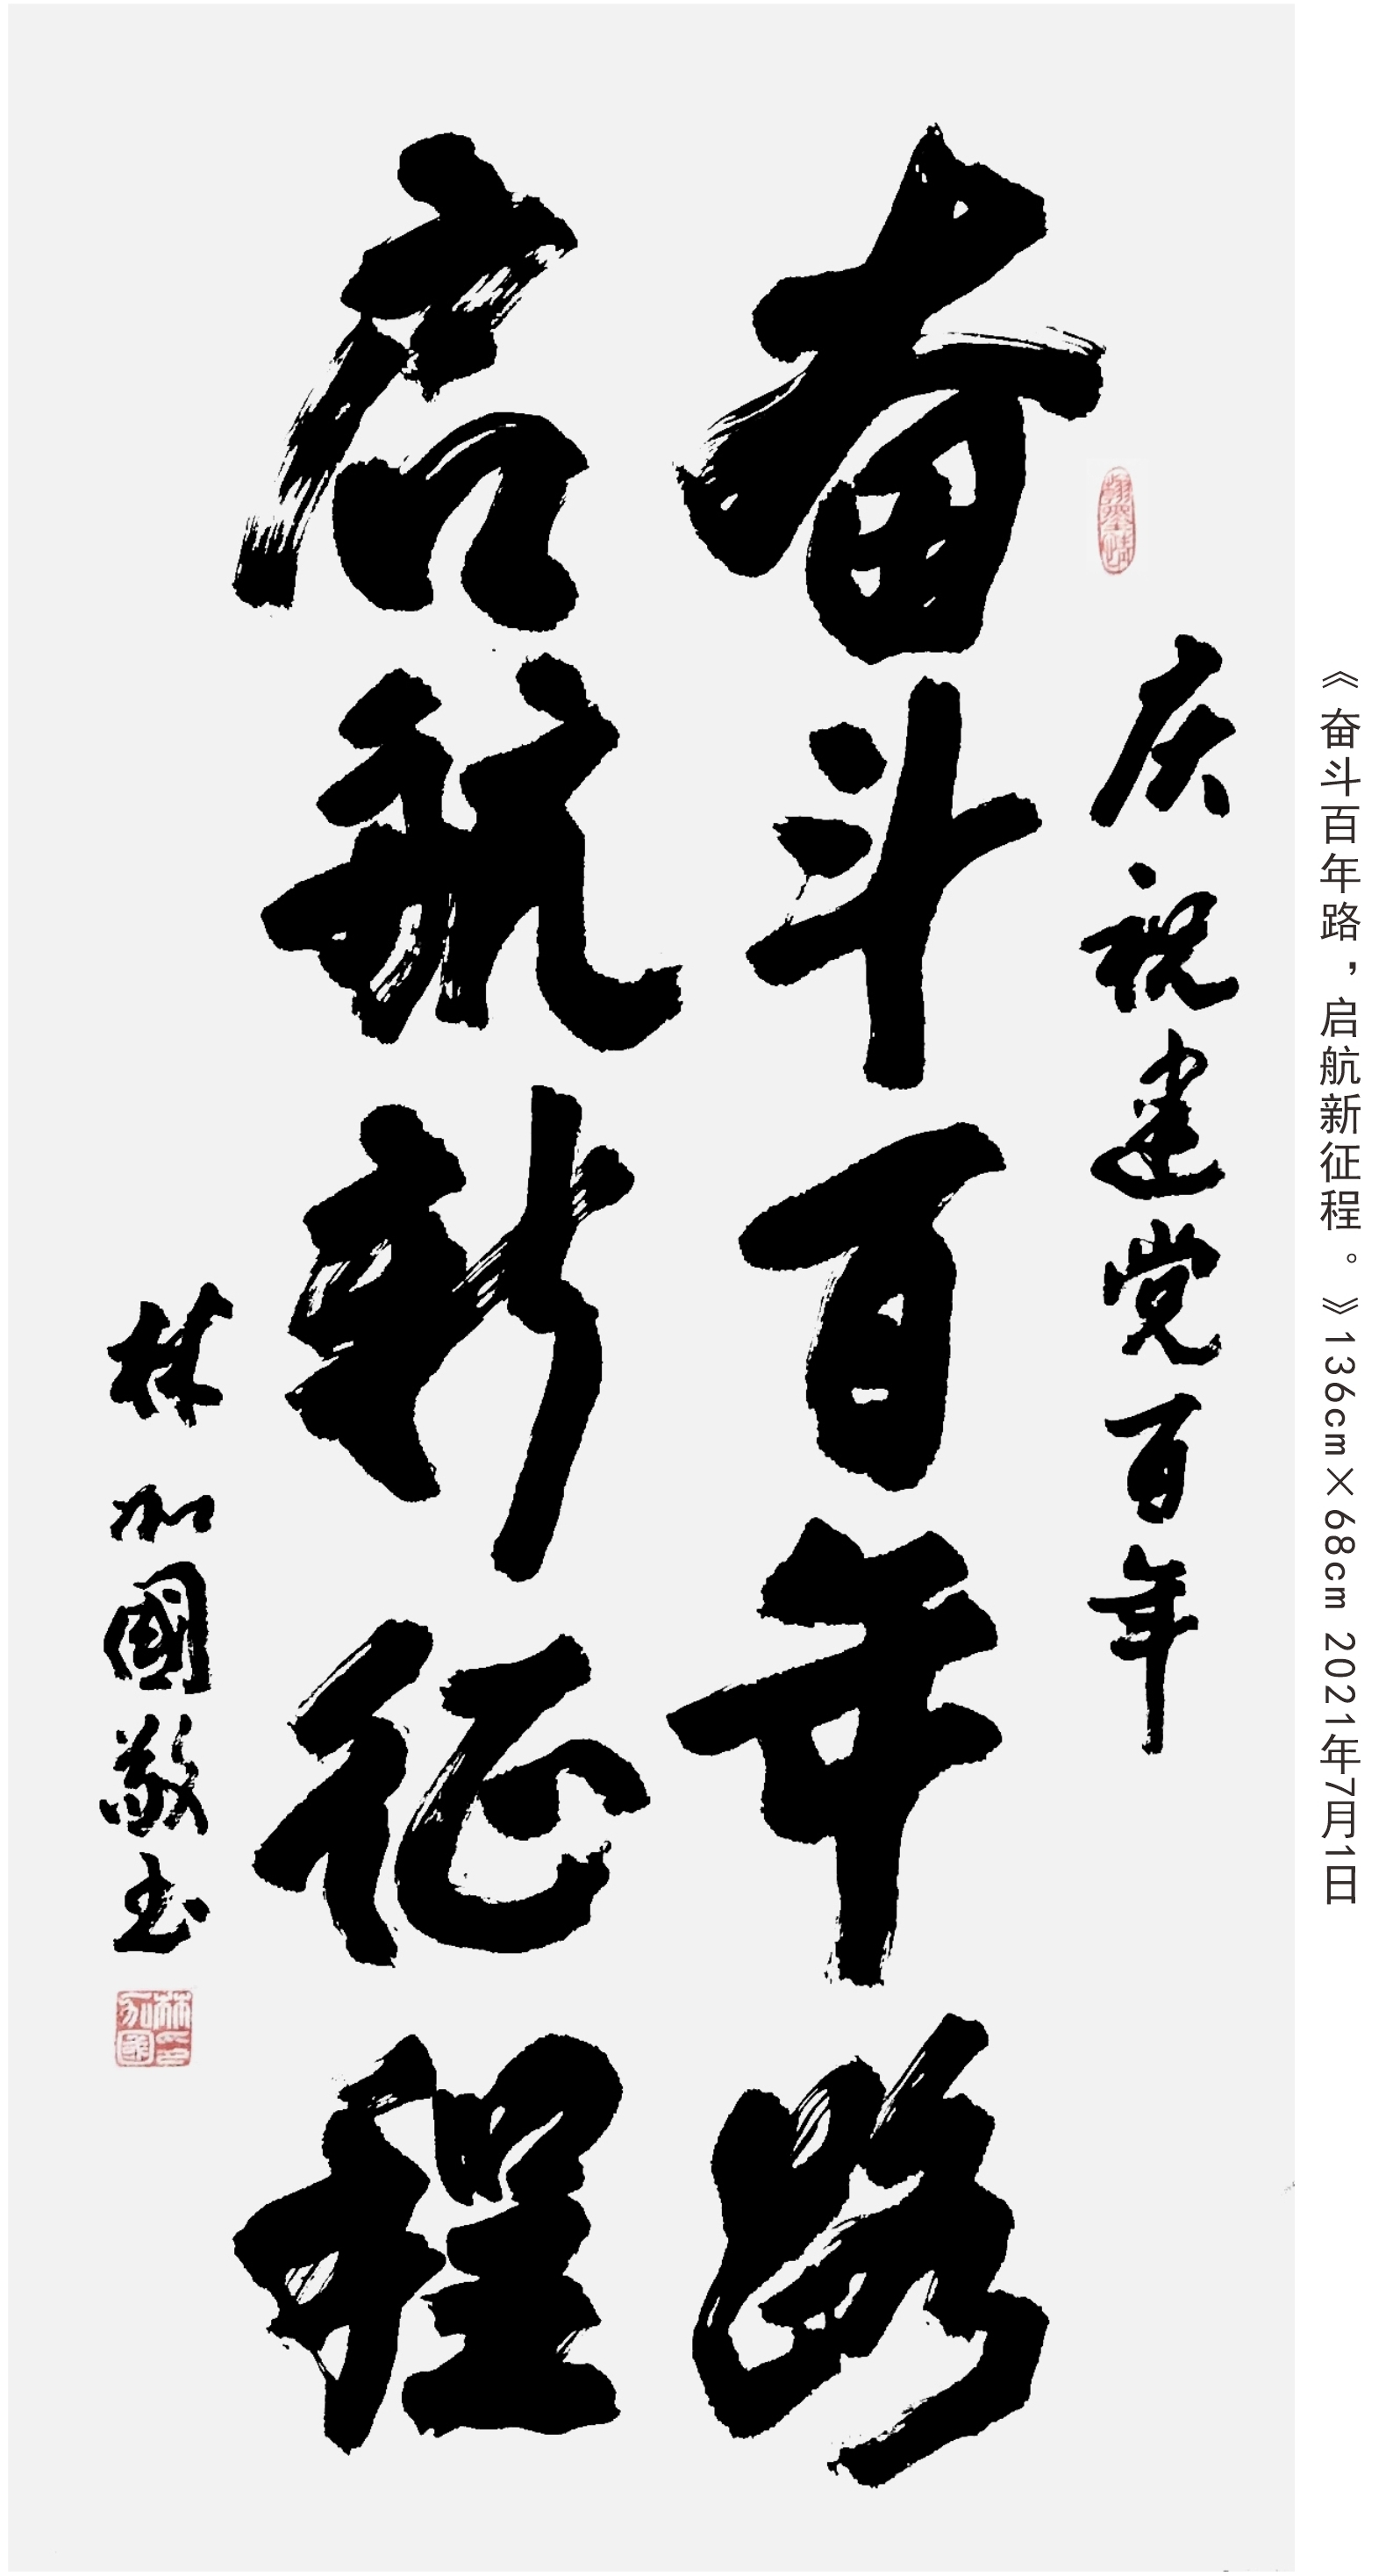 《奋斗百年路，启航新征程。》136cm×68cm 2021年7月1日
庆祝建党百年
奋斗百年路
启航新征程
林加國敬书
林加國印